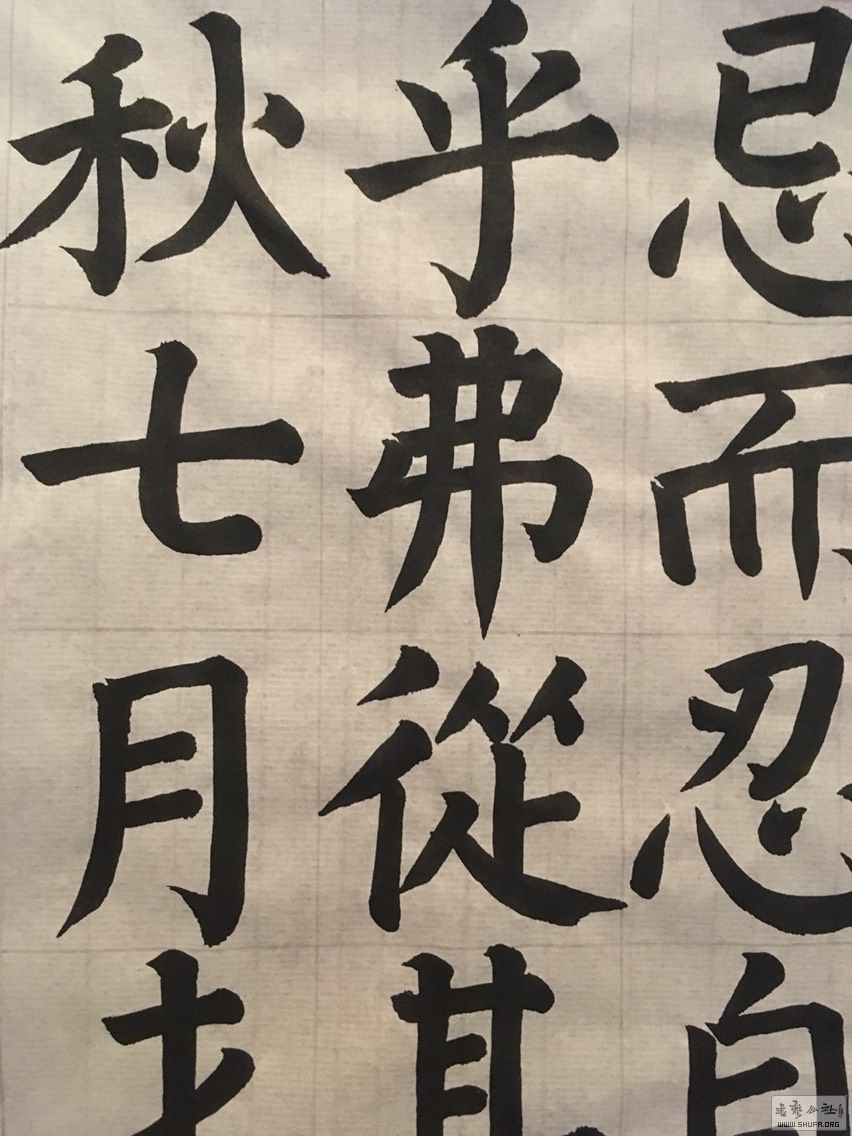 忌而忍
乎弗從其
秋七月
書藝公社
WWW.SHUFA.ORG